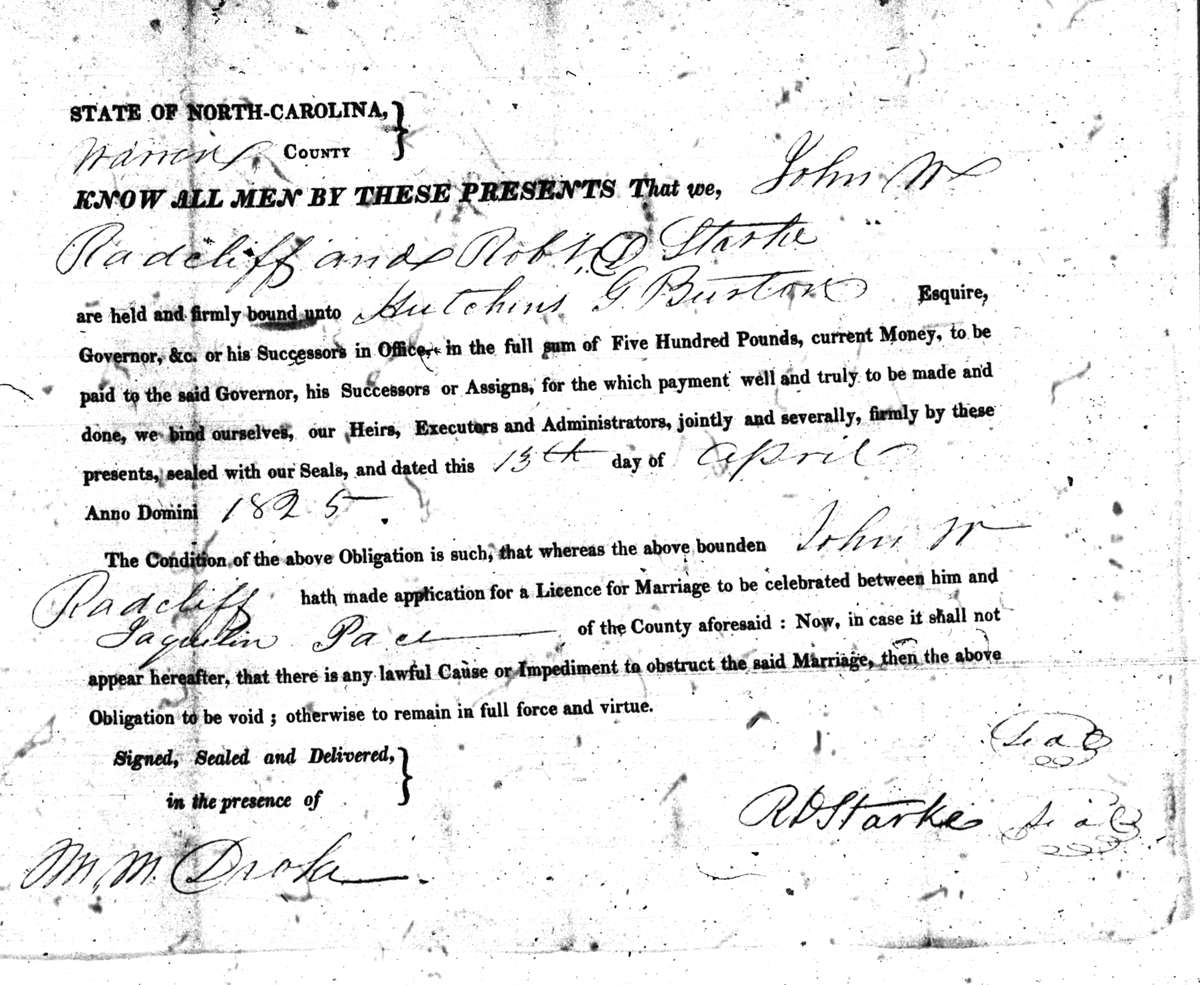 STATE OF NORTH-CAROLINA, }
Warren COUNTY
KNOW ALL MEN BY THESE PRESENTS That we, John W
Radcliff and Robt. D Starke
are held and firmly bound unto Hutchins G Burton Esquire,
Governor, &c. or his Successors in Office, in the full sum of Five Hundred Pounds, current Money, to be
paid to the said Governor, his Successors or Assigns, for the which payment well and truly to be made and
done, we bind ourselves, our Heirs, Executors and Administrators, jointly and severally, firmly by these
presents, sealed with our Seals, and dated this 13th day of April
Anno Domini 1825.
The Condition of the above Obligation is such, that whereas the above bounden John W
Radcliff hath made application for a Licence for Marriage to be celebrated between him and
Jaquelin Pace of the County aforesaid : Now, in case it shall not
appear hereafter, that there is any lawful Cause or Impediment to obstruct the said Marriage, then the above
Obligation to be void ; otherwise to remain in full force and virtue.
Signed, Sealed and Delivered, }
in the presence of
Seal
R D Starke Seal
M. M. Drake.